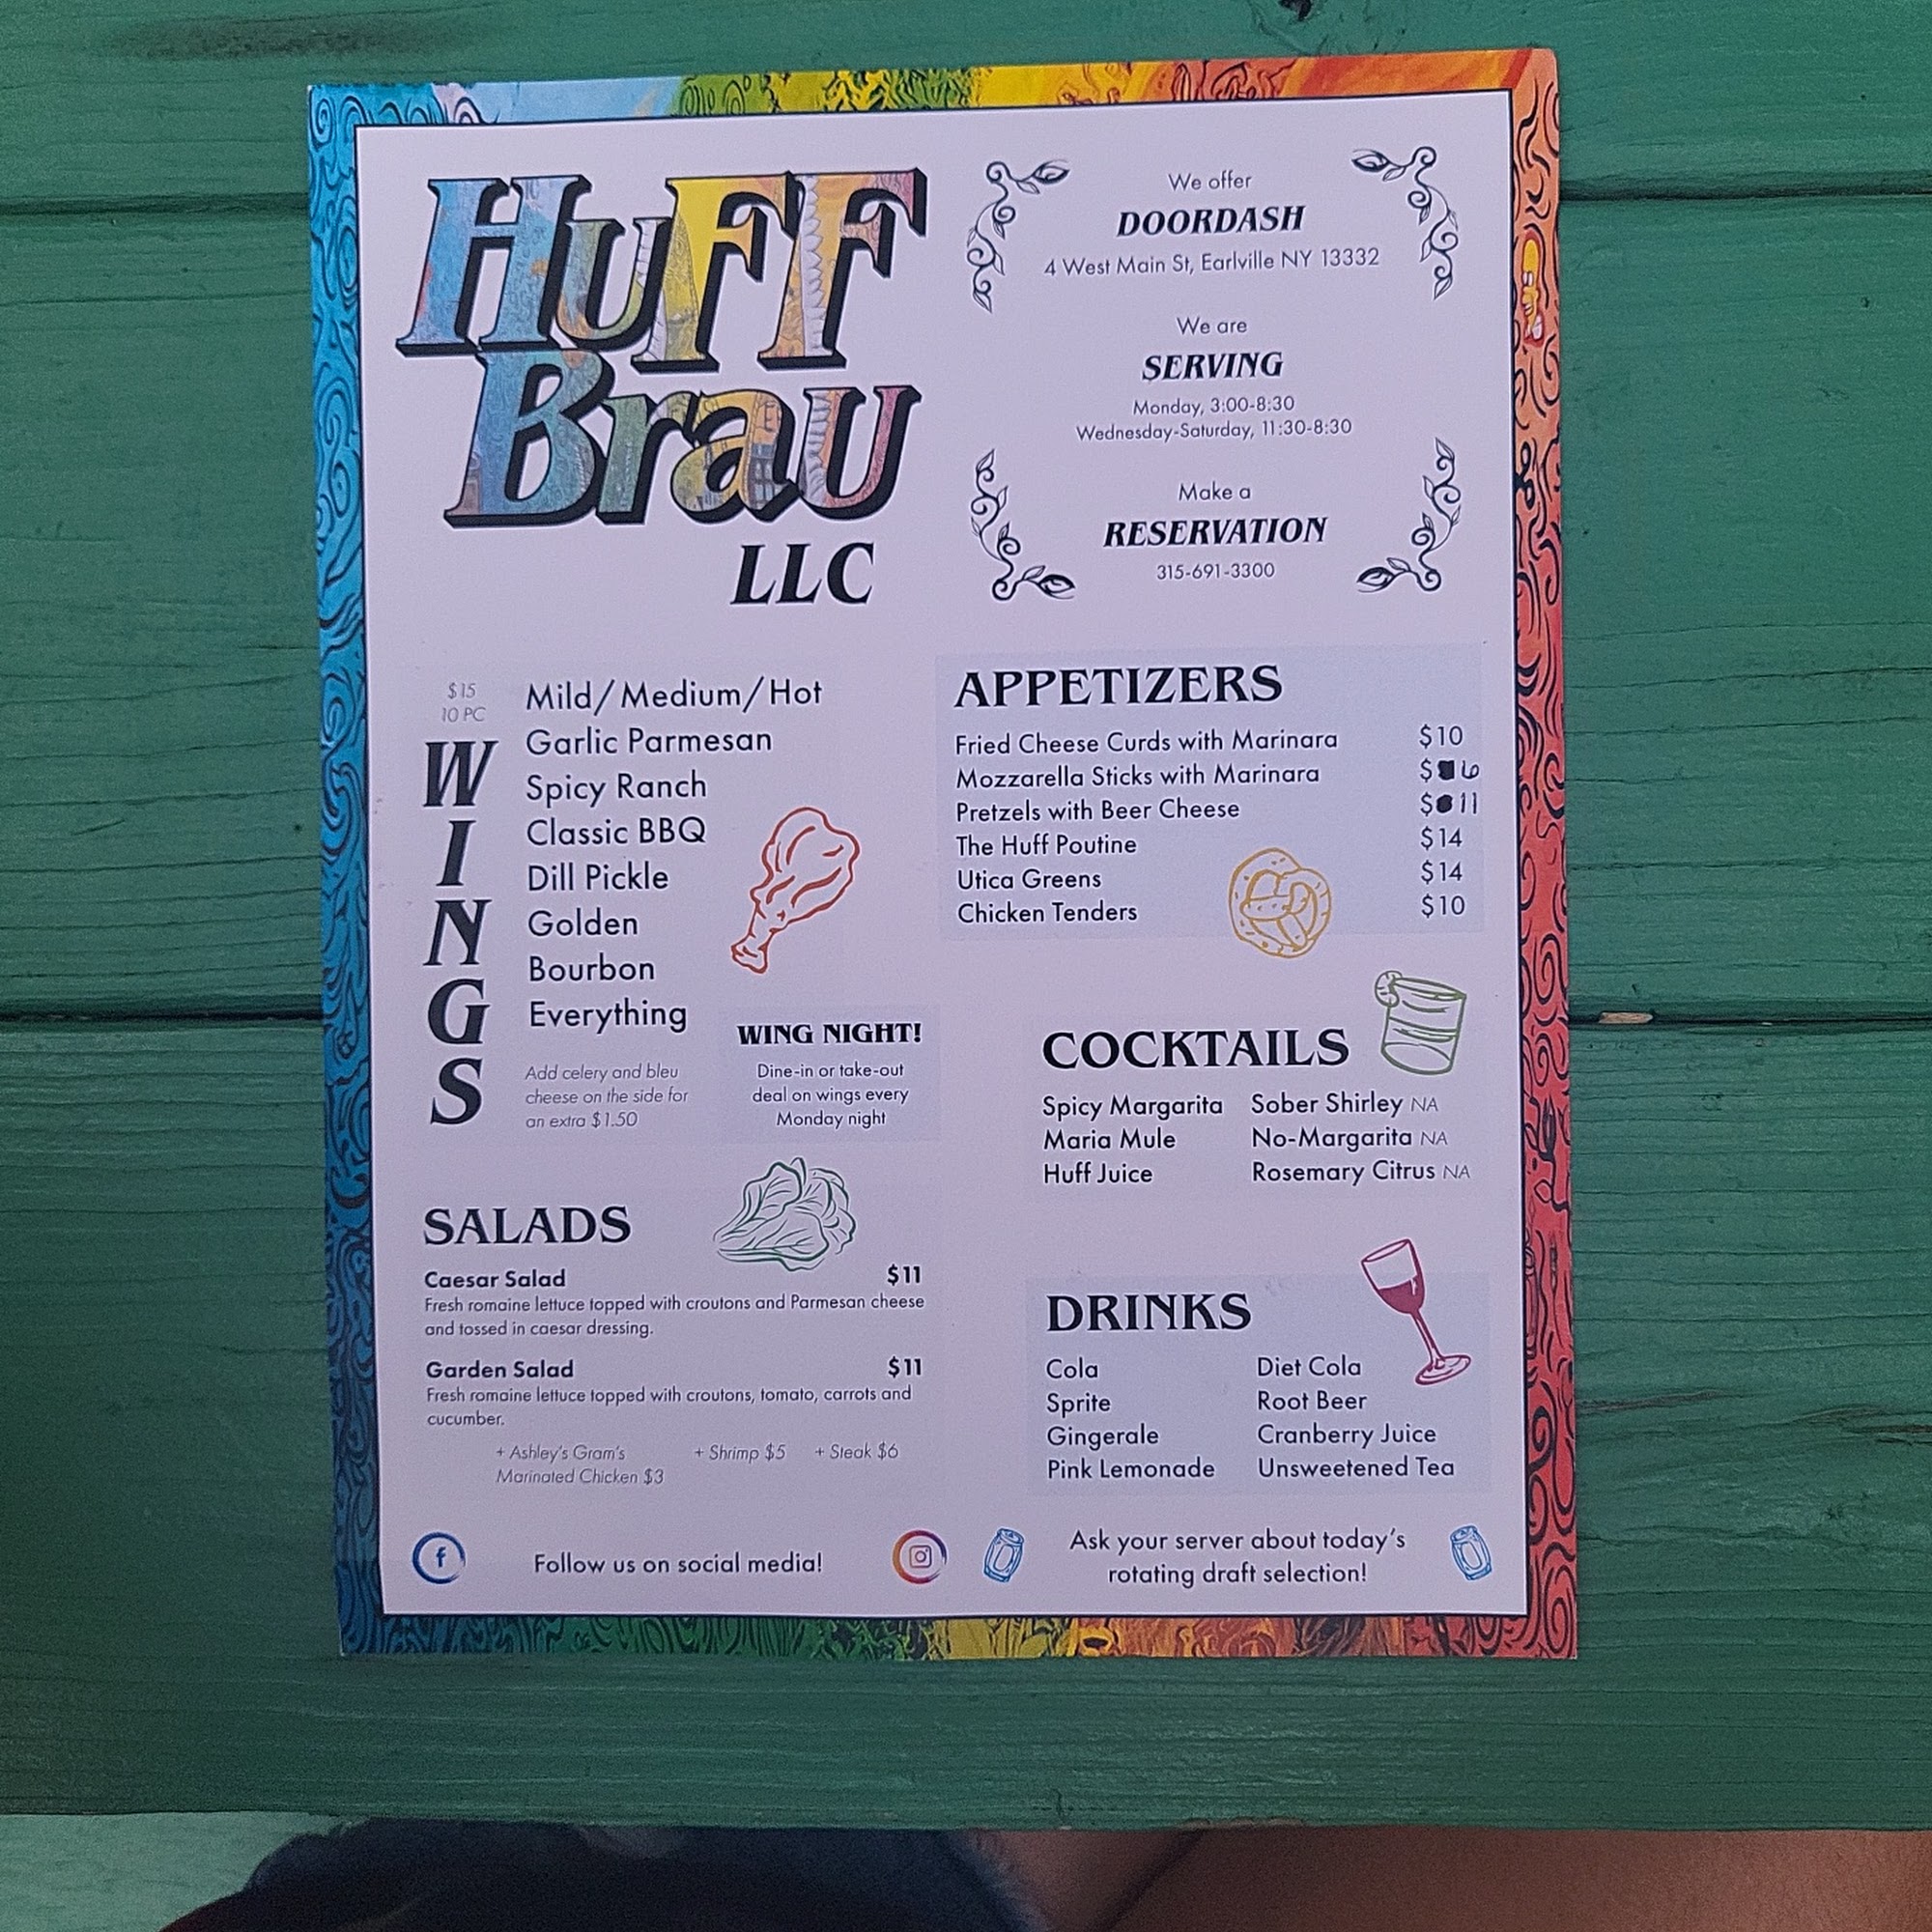 HuFF
Brau
LLC
We offer
DOORDASH
4 West Main St, Earlville NY 13332
We are
SERVING
Monday, 3:00-8:30
Wednesday-Saturday, 11:30-8:30
Make a
RESERVATION
315-691-3300
$15
10 PC
WINGS
Mild/Medium/Hot
Garlic Parmesan
Spicy Ranch
Classic BBQ
Dill Pickle
Golden
Bourbon
Everything
Add celery and bleu
cheese on the side for
an extra $1.50
WING NIGHT!
Dine-in or take-out
deal on wings every
Monday night
SALADS
Caesar Salad $11
Fresh romaine lettuce topped with croutons and Parmesan cheese
and tossed in caesar dressing.
Garden Salad $11
Fresh romaine lettuce topped with croutons, tomato, carrots and
cucumber.
+ Ashley's Gram's + Shrimp $5 + Steak $6
Marinated Chicken $3
Follow us on social media!
APPETIZERS
Fried Cheese Curds with Marinara $10
Mozzarella Sticks with Marinara $ 6
Pretzels with Beer Cheese $ 11
The Huff Poutine $14
Utica Greens $14
Chicken Tenders $10
COCKTAILS
Spicy Margarita Sober Shirley NA
Maria Mule No-Margarita NA
Huff Juice Rosemary Citrus NA
DRINKS
Cola Diet Cola
Sprite Root Beer
Gingerale Cranberry Juice
Pink Lemonade Unsweetened Tea
Ask your server about today's
rotating draft selection!